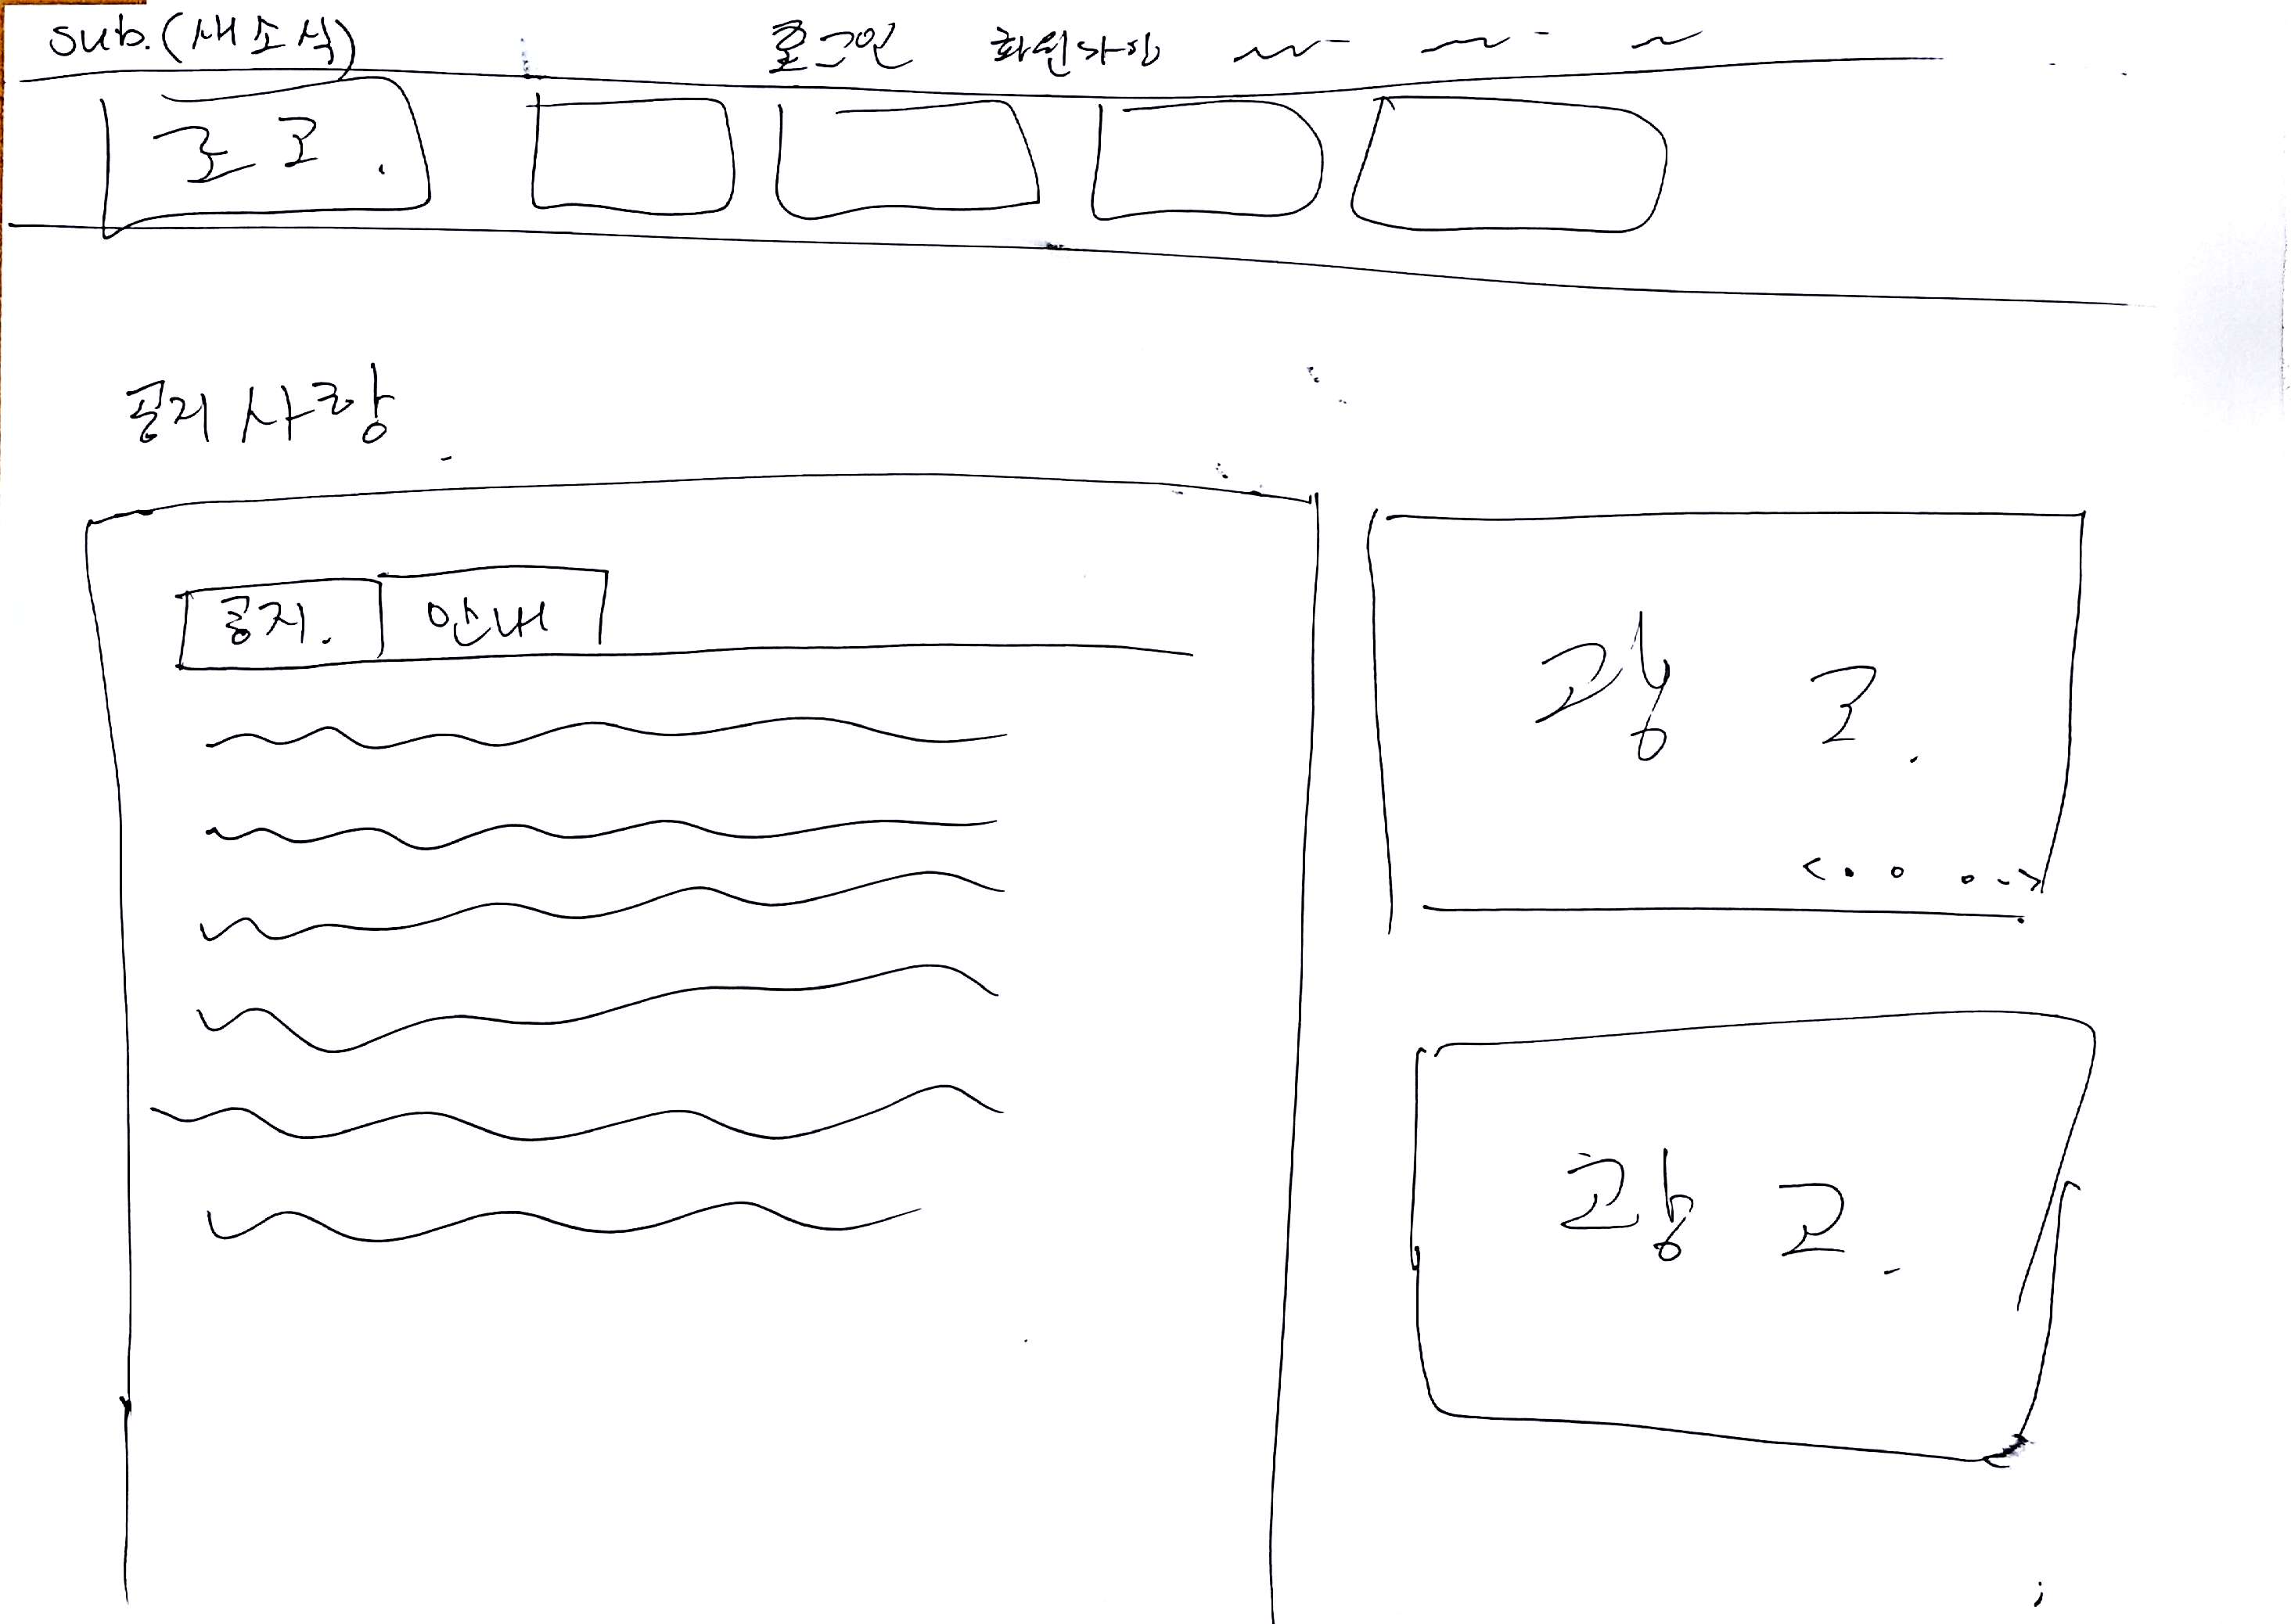 sub.(새소식)
로그인 회원가입
로고.
공지사항
공지. 안내
광 고.
광 고.